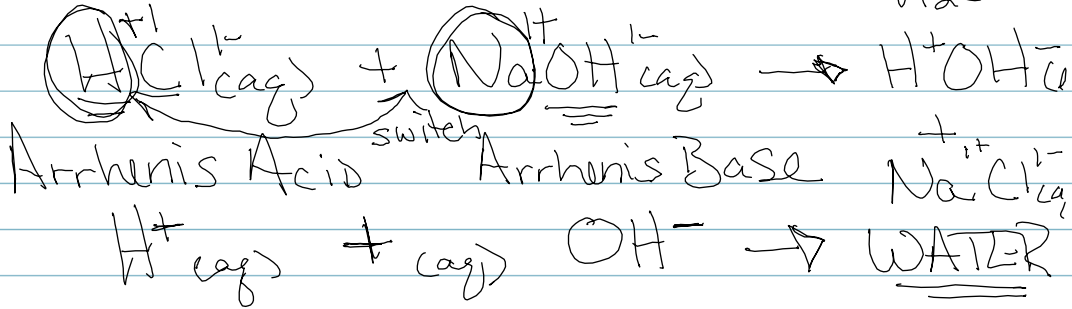 H⁺¹Cl¹⁻(aq) + Na¹⁺OH¹⁻(aq) → H⁺OH⁻(l
switch
+
Arrhenis Acid Arrhenis Base Na¹⁺Cl¹⁻(aq
H⁺(aq) + (aq) OH⁻ → WATER